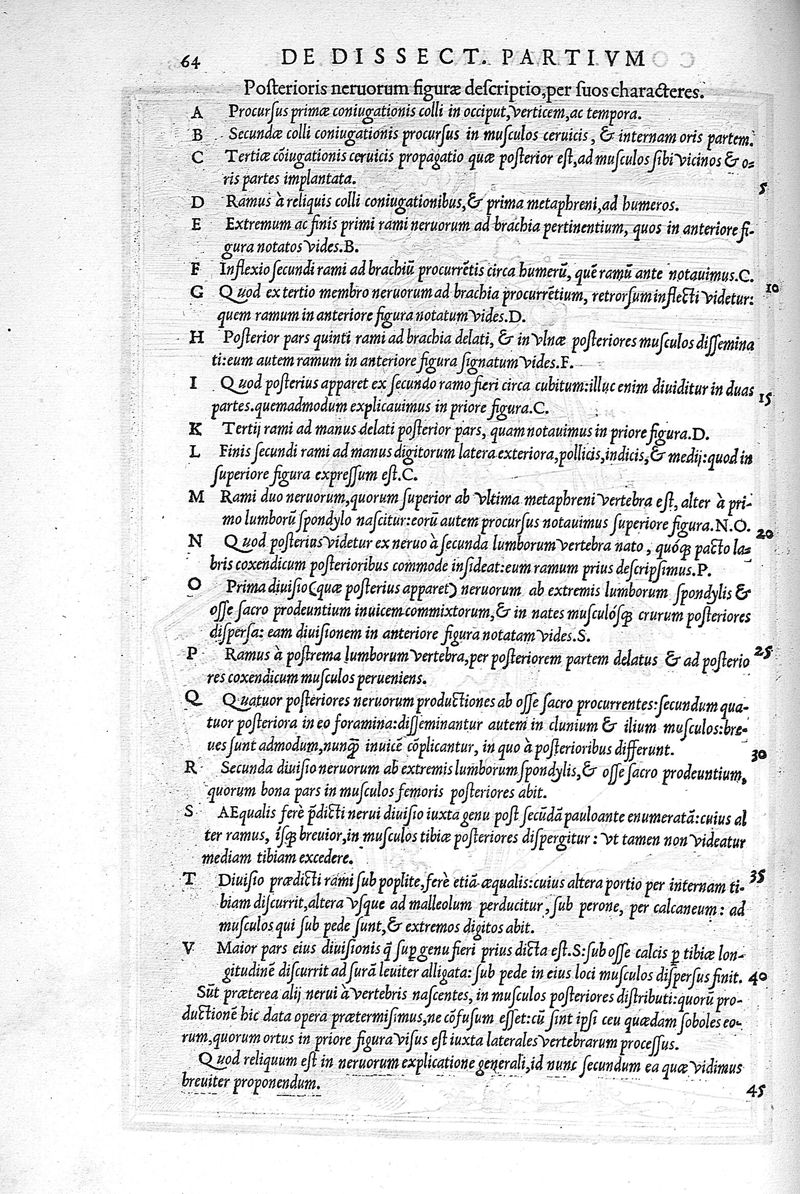 64 DE DISSECT. PARTIVM
Posterioris neruorum figuræ descriptio,per suos characteres.
A Procursus primæ coniugationis colli in occiput,verticem,ac tempora.
B Secundæ colli coniugationis procursus in musculos ceruicis, & internam oris partem.
C Tertiæ cōiugationis ceruicis propagatio quæ posterior est,ad musculos sibi vicinos & o-
ris partes implantata. 5
D Ramus à reliquis colli coniugationibus,& prima metaphreni,ad humeros.
E Extremum ac finis primi rami neruorum ad brachia pertinentium, quos in anteriore fi-
gura notatos vides.B.
F Inflexio secundi rami ad brachiū procurrētis circa humerū, quē ramū ante notauimus.C.
G Quod ex tertio membro neruorum ad brachia procurrētium, retrorsum inflecti videtur: 10
quem ramum in anteriore figura notatum vides.D.
H Posterior pars quinti rami ad brachia delati, & in vlnæ posteriores musculos dissemina
ti:eum autem ramum in anteriore figura signatum vides.F.
I Quod posterius apparet ex secundo ramo fieri circa cubitum:illuc enim diuiditur in duas
partes.quemadmodum explicauimus in priore figura.C. 15
K Tertij rami ad manus delati posterior pars, quam notauimus in priore figura.D.
L Finis secundi rami ad manus digitorum latera exteriora,pollicis,indicis,& medij:quod in
superiore figura expressum est.C.
M Rami duo neruorum,quorum superior ab vltima metaphreni vertebra est, alter à pri-
mo lumborū spondylo nascitur:eorū autem procursus notauimus superiore figura.N.O. 20
N Quod posterius videtur ex neruo à secunda lumborum vertebra nato, quóq; pacto la-
bris coxendicum posterioribus commode insideat:eum ramum prius descripsimus.P.
O Prima diuisio(quæ posterius apparet) neruorum ab extremis lumborum spondylis &
osse sacro prodeuntium inuicem commixtorum,& in nates musculósq; crurum posteriores
dispersa: eam diuisionem in anteriore figura notatam vides.S.
P Ramus à postrema lumborum vertebra,per posteriorem partem delatus & ad posterio 25
res coxendicum musculos perueniens.
Q Quatuor posteriores neruorum productiones ab osse sacro procurrentes:secundum qua-
tuor posteriora in eo foramina:disseminantur autem in clunium & ilium musculos:bre-
ues sunt admodum,nunq̄ inuicē cōplicantur, in quo à posterioribus differunt. 30
R Secunda diuisio neruorum ab extremis lumborum spondylis,& osse sacro prodeuntium,
quorum bona pars in musculos femoris posteriores abit.
S AEqualis ferè p̄dicti nerui diuisio iuxta genu post secūdā pauloante enumeratā:cuius al
ter ramus, ísq; breuior,in musculos tibiæ posteriores dispergitur: vt tamen non videatur
mediam tibiam excedere.
T Diuisio prædicti rami sub poplite,ferè etiā æqualis:cuius altera portio per internam ti- 35
biam discurrit,altera vsque ad malleolum perducitur, sub perone, per calcaneum: ad
musculos qui sub pede sunt,& extremos digitos abit.
V Maior pars eius diuisionis q̄ sup̱ genu fieri prius dicta est.S:sub osse calcis p̱ tibiæ lon-
gitudinē discurrit ad surā leuiter alligata: sub pede in eius loci musculos dispersus finit. 40
Sūt præterea alij nerui à vertebris nascentes, in musculos posteriores distributi:quorū pro-
ductionē hic data opera prætermisimus,ne cōfusum esset:cū sint ipsi ceu quædam soboles eo-
rum,quorum ortus in priore figura visus est iuxta laterales vertebrarum processus.
Quod reliquum est in neruorum explicatione generali,id nunc secundum ea quæ vidimus
breuiter proponendum. 45